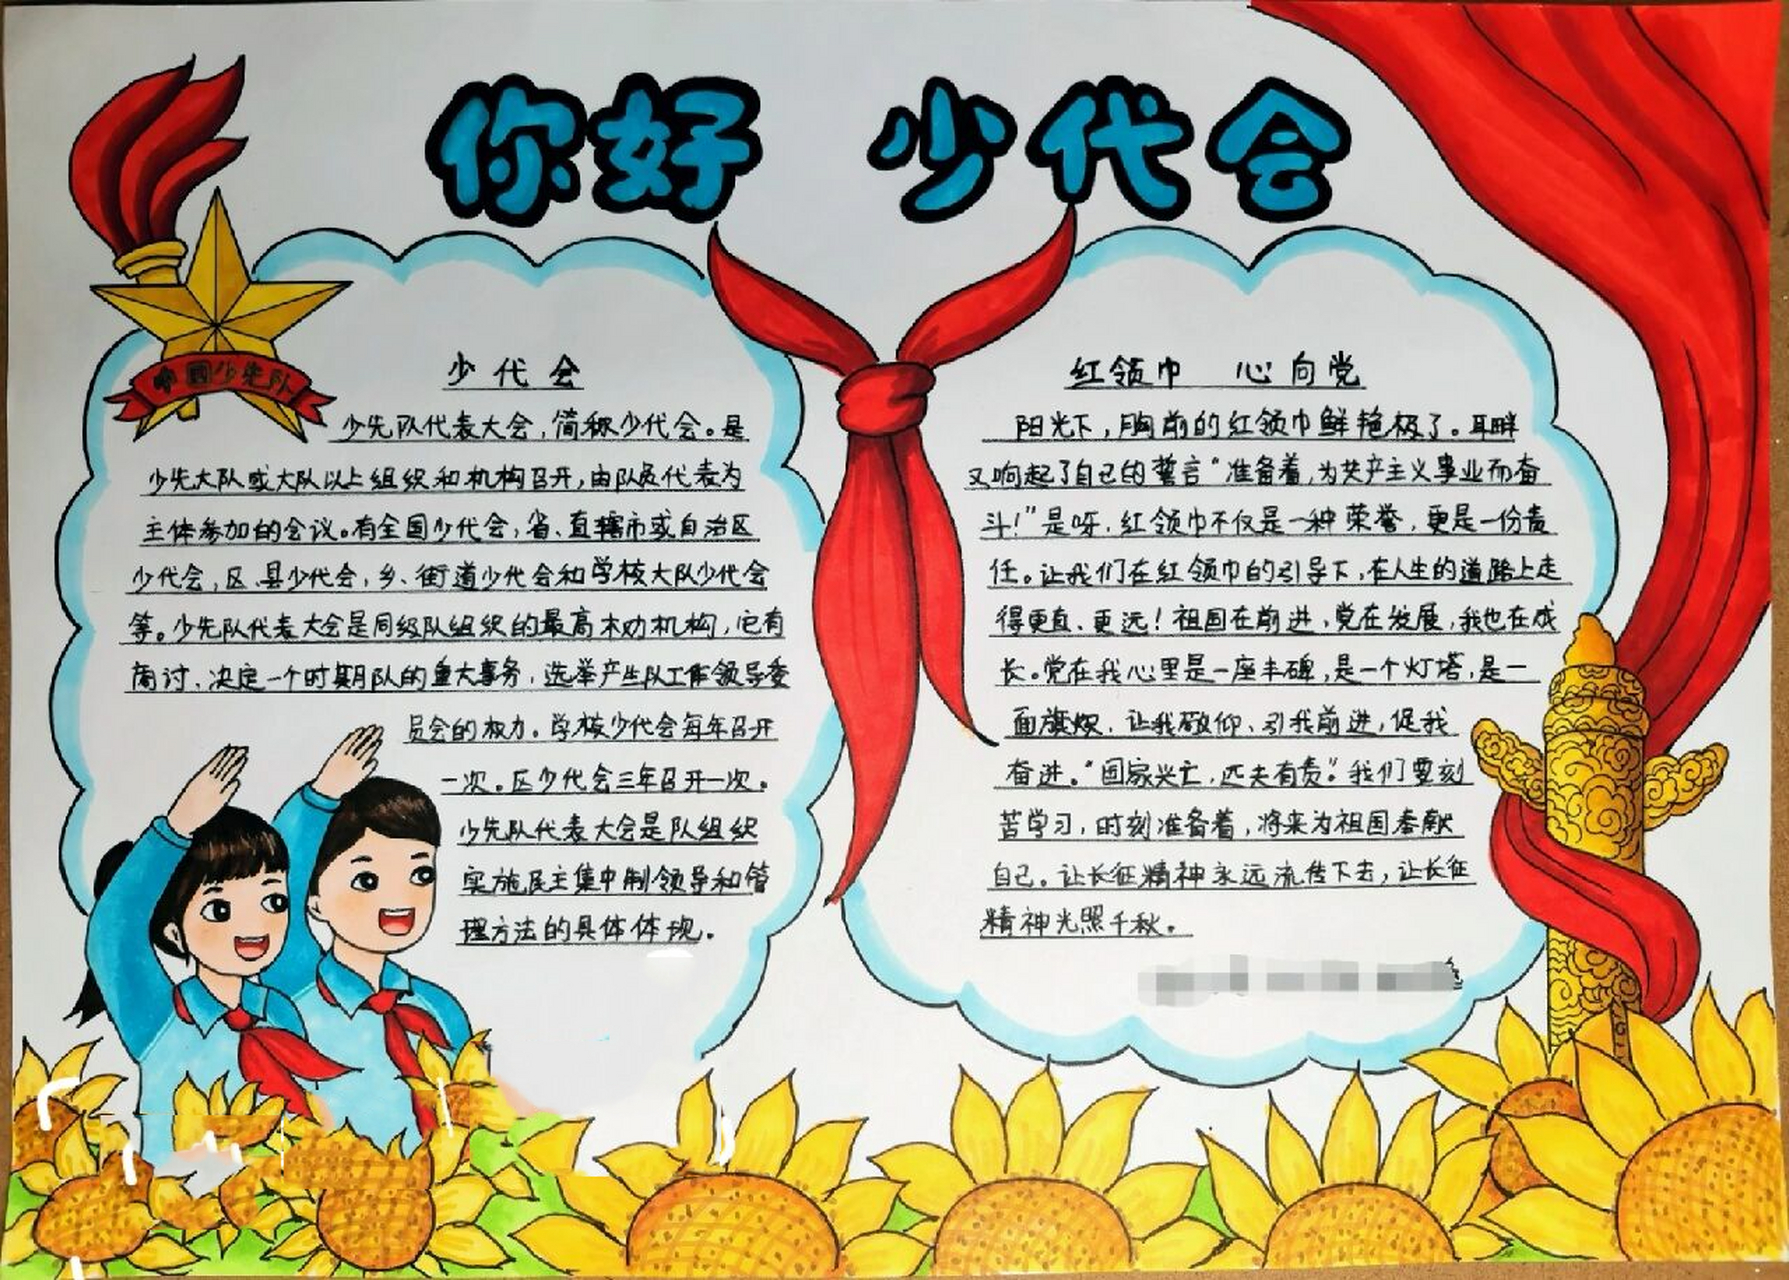 你好 少代会
中國少先队
少代会
少先队代表大会，简称少代会。是
少先大队或大队以上组织和机构召开，由队员代表为
主体参加的会议。有全国少代会，省、直辖市或自治区
少代会，区、县少代会，乡、街道少代会和学校大队少代会
等。少先队代表大会是同级队组织的最高权力机构，它有
商讨、决定一个时期队的重大事务，选举产生队工作领导委
员会的权力。学校少代会每年召开
一次。区少代会三年召开一次。
少先队代表大会是队组织
实施民主集中制领导和管
理方法的具体体现。
红领巾 心向党
阳光下，胸前的红领巾鲜艳极了。耳畔
又响起了自己的誓言“准备着，为共产主义事业而奋
斗！”是呀，红领巾不仅是一种荣誉，更是一份责
任。让我们在红领巾的引导下，在人生的道路上走
得更直、更远！祖国在前进，党在发展，我也在成
长。党在我心里是一座丰碑，是一个灯塔，是一
面旗帜，让我敬仰、引我前进，促我
奋进。“国家兴亡，匹夫有责”。我们要刻
苦学习，时刻准备着，将来为祖国奉献
自己。让长征精神永远流传下去，让长征
精神光照千秋。